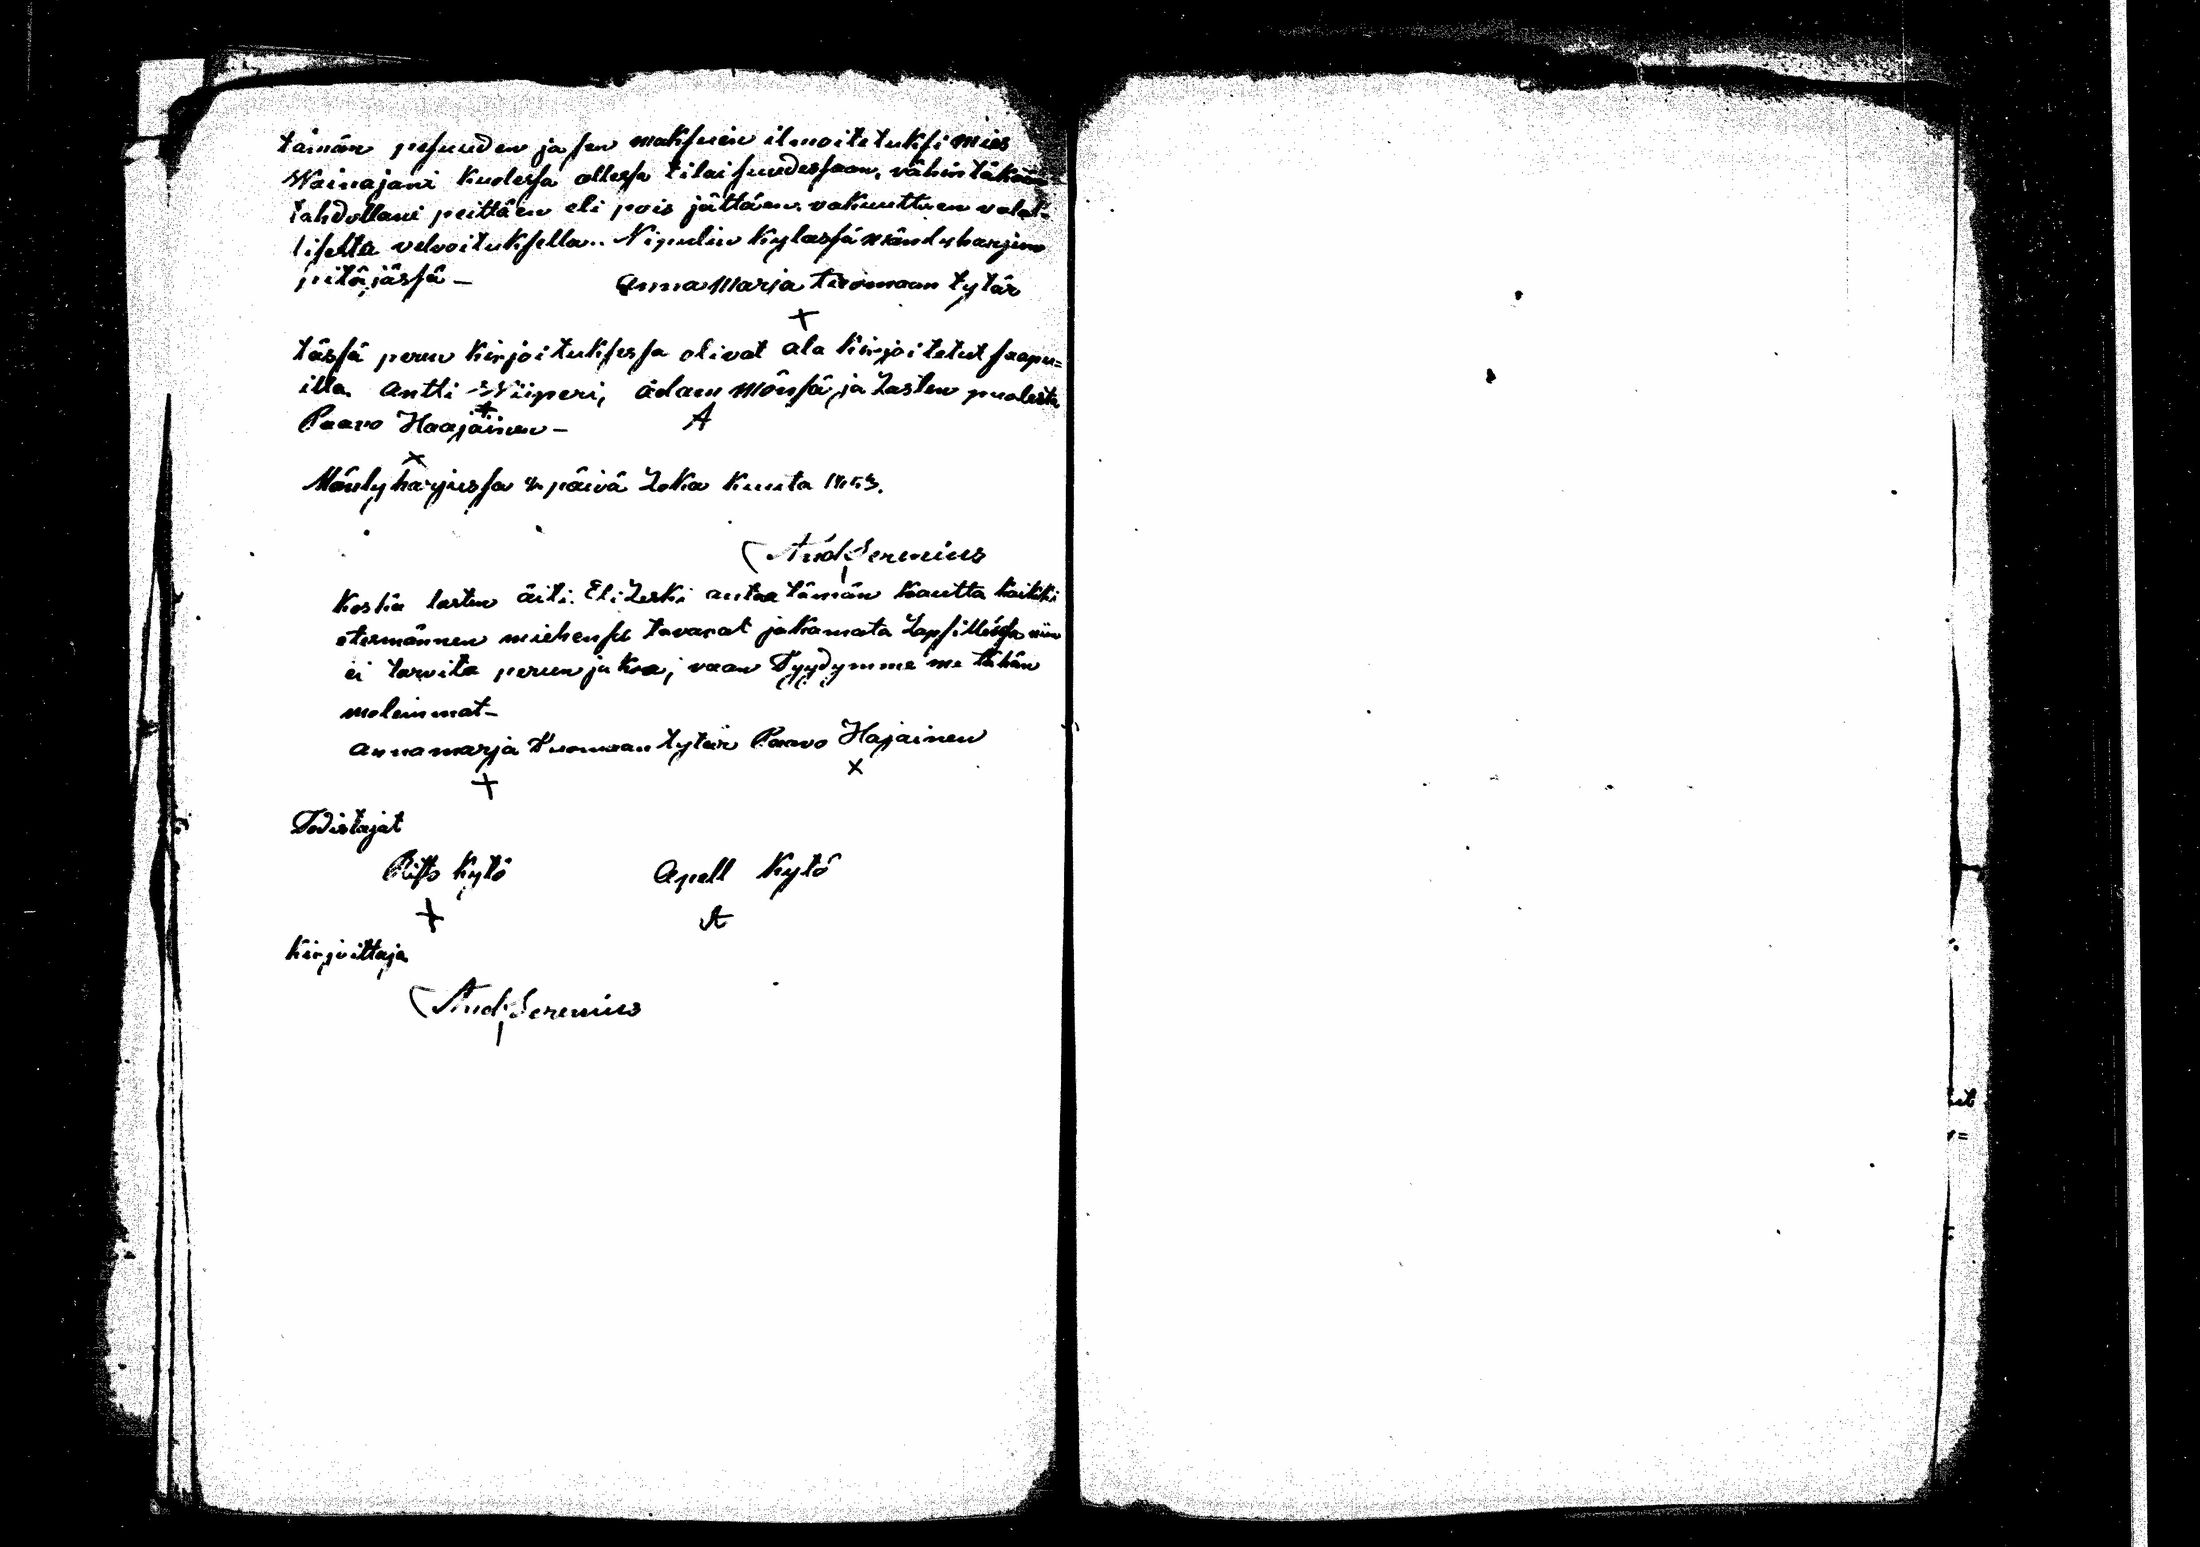 tämän pesuuden ja sen maksuin ilmoitetuksi mies
Wainajani kuolessa ollessa tilaisuudessaan, vähintäkään
tahdollani peittäen eli pois jättäen, vakuuttaen valal-
lisella velvoituksella.. Nipulin kylässä mändyharjun
pitäjässä - Anna Marja Tuomaan tytär
+
tässä perun kirjoituksessa olivat ala kirjoitetut saapu=
illa Antti Wiiperi, Adam Mönsä, ja Lasten puolesta
Paavo Haajainen -
A
x
Mändyharjussa päivä Loka kuuta 1853.
And Serenius
koska lasten äiti Eli Leski antaa tämän kautta kaikki
etesmännen miehensä tavarat jakamata Lapsillensa niin
ei tarvita perun jakoa; vaan Tyydymme me tähän
molemmat -
Anna marja Tuomaan tytär Paavo Hajainen
+ x
Todistajat
Kytö Apell Kytö
+ A
kirjoittaja
And Serenius